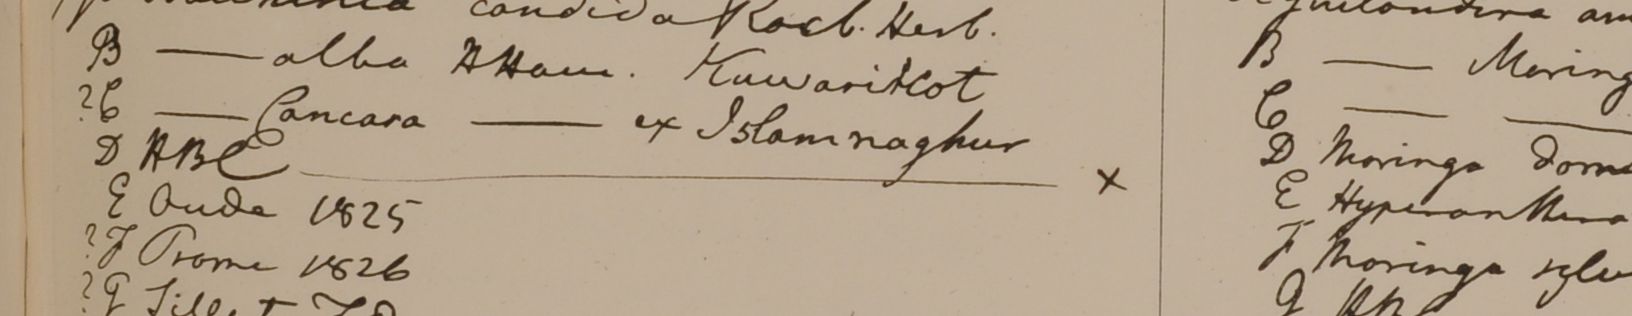 candida Roxb. Herb.
B — alba HHam. Kuwaritkot
?C — Cancara — ex Islamnaghur
D HBC — x
E Oude 1825
?F Prome 1826
?G
B — Moring
C — —
D Moringa dome
E Hyperanthera
F Moringa sylv
G HBC